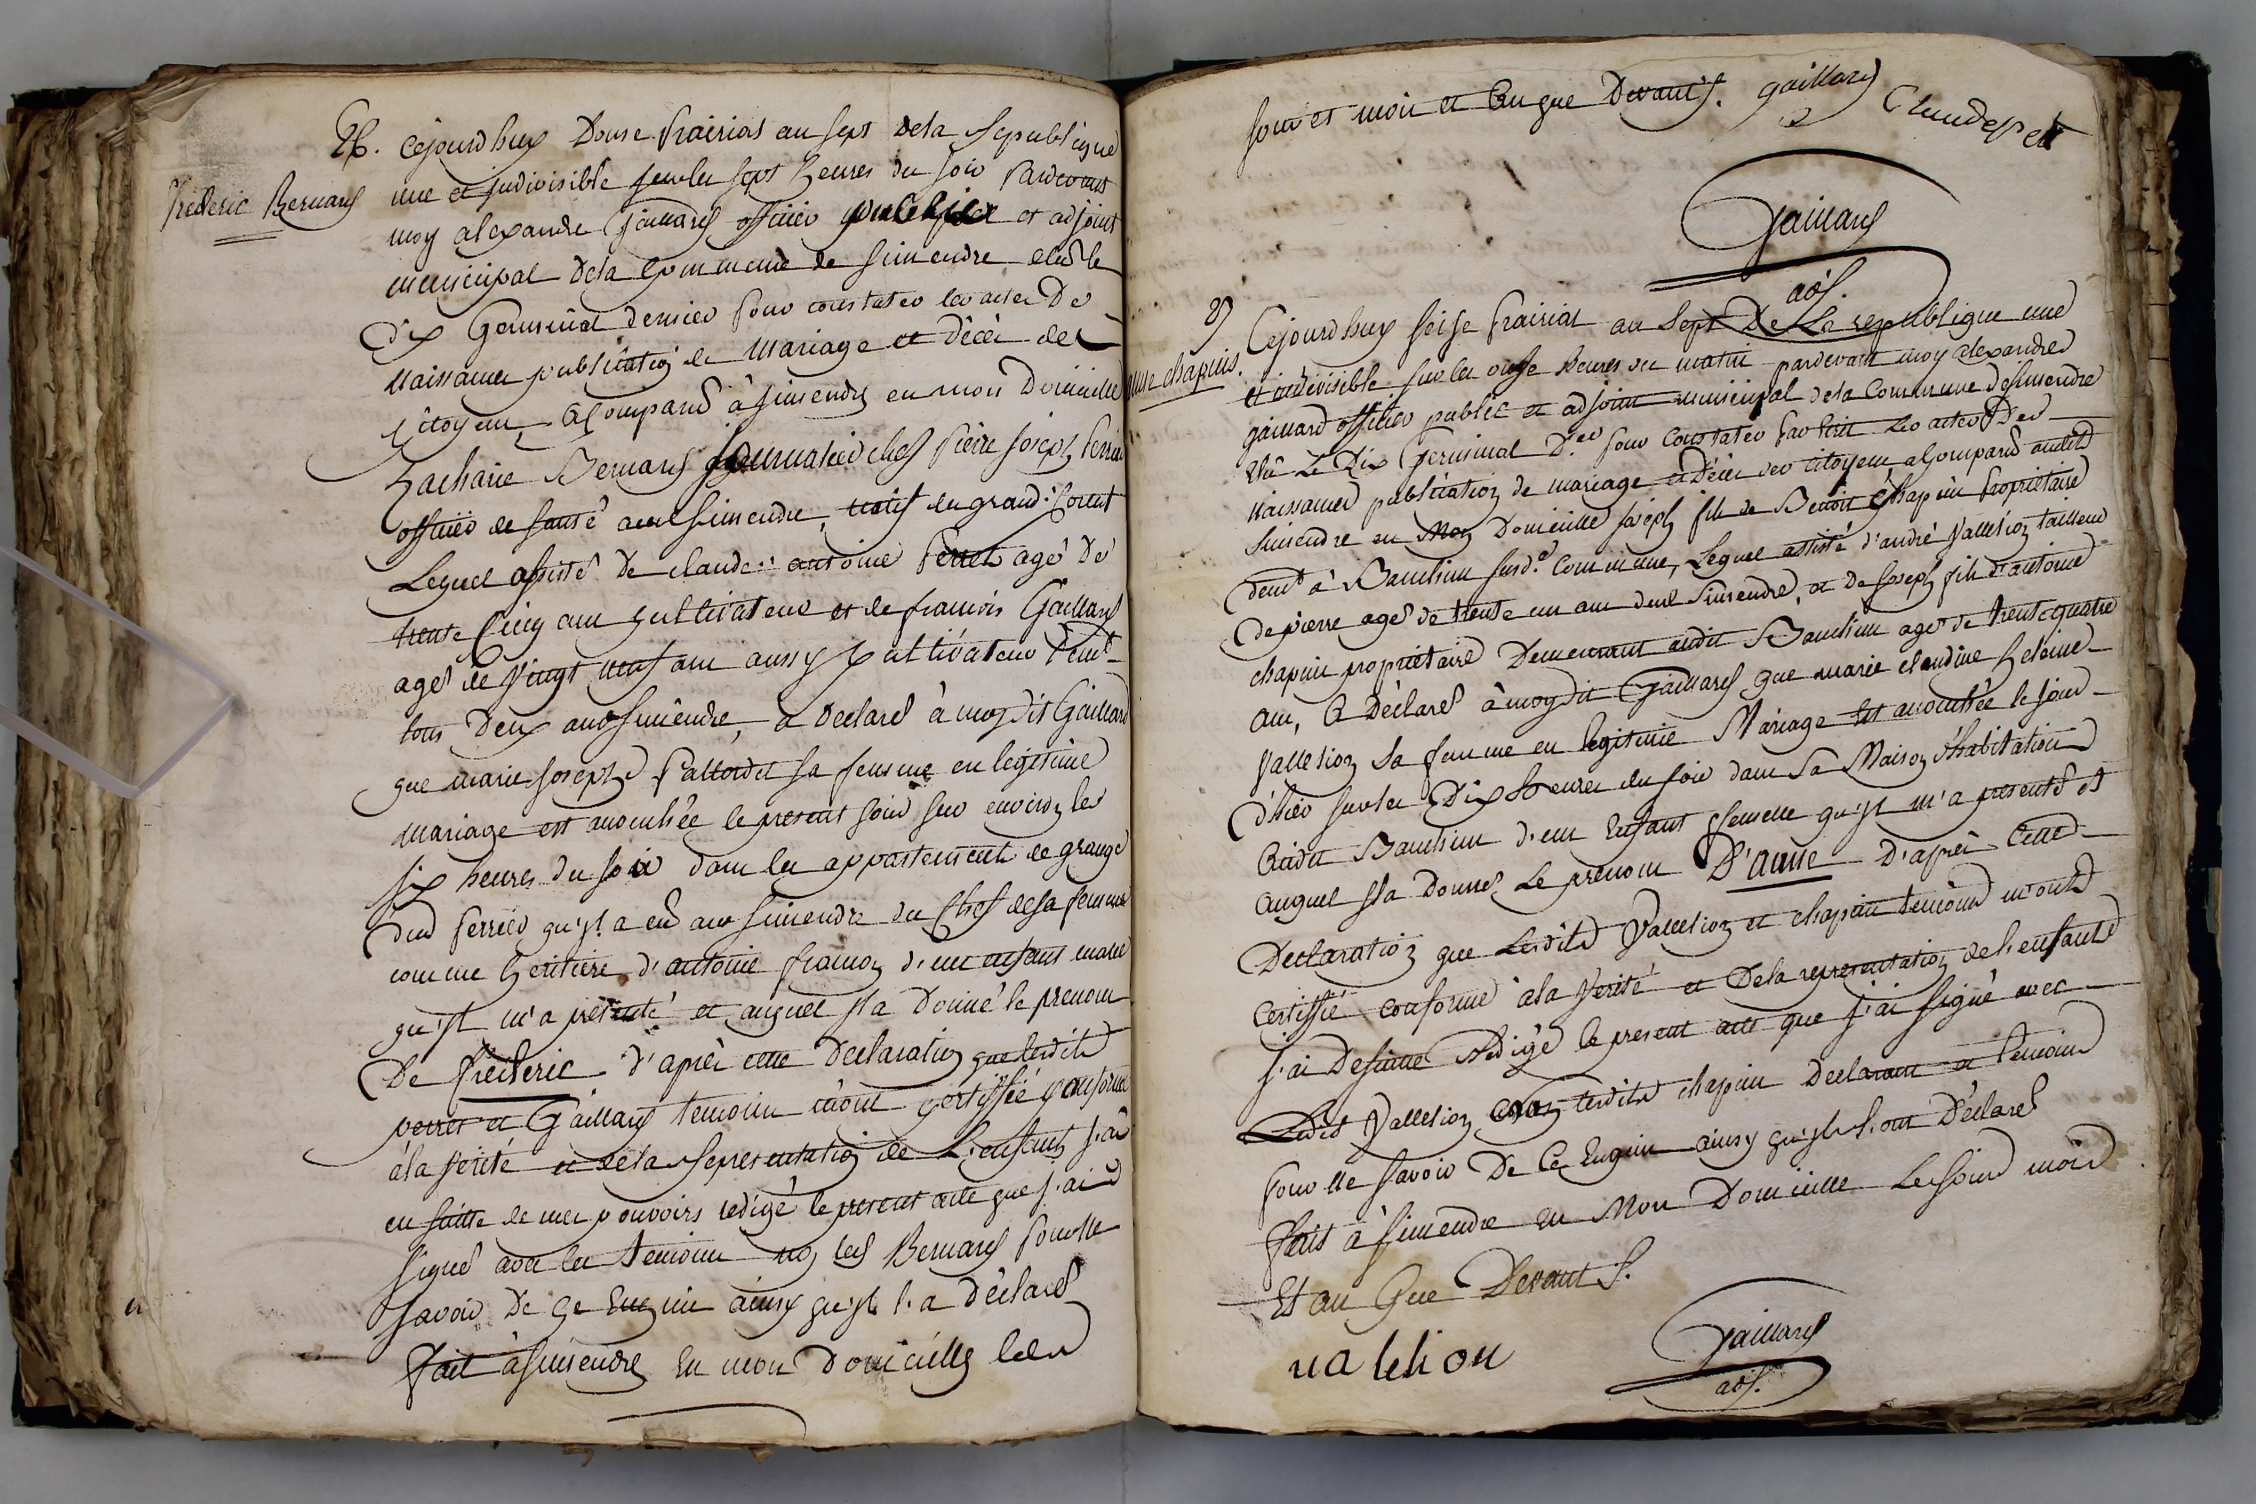 26. Cejourdhuy Douse prairial an sept dela republique
frederic Bernard
une et indivisible sur les sept heures du soir pardevant
moy alexandre gaillard officier public et adjoint
municipal dela Commune de simendre elu le
Dix Germinal dernier pour constater les actes De
Naissance publication de Mariage et décès des
Citoyens, a Comparu à simendre en mon Domicille
Zacharie Bernard journalier chez pierre joseph ferrier
officier de santé aud simendre, natif du grand
Lequel assisté De claude antoine perret agé De
trente Cinq ans Cultivateur et de francois Gaillard
agé de Vingt neuf ans aussy Cultivateur demt
tous Deux aud simendre, a declaré à moy dit Gaillard
que marie josephe sa femme en legitime
mariage est accouchée le present jour sur environ les
six heures du soir dans les appartement de grange
dud ferrier qu'il a eu aud simendre du Chef de sa femme
comme heritiere d'antoine d'un enfant male
qu'il m'a présenté et auquel il a Donné le prenom
De frederic d'après cette Declaration que lesdits
perret et Gaillard temoins m'ont certiffié conforme
à la verité et dela representation de L'enfant j'ai
en suitte de mes pouvoirs redigé le present acte que j'ai
signé avec les temoins non led Bernard pour ne
savoir De ce Enquis ainsy qu'il l'a déclaré
fait à simendre En mon Domicille les
jour et mois et an que Devant. gaillard
Claudeperet
Gaillard
adj.
27 Cejourdhuy seise prairial an Sept De La republique une
anne chapuis.
et indivisible sur les onse heures du matin pardevant moy alexandre
gaillard officier public et adjoint municipal dela Commune de simendre
élu Le Dix Germinal Der pour Constater par Ecrit Les actes Des
Naissances publication de mariage et Décès des Citoyens a Comparu audit
Simendre en Mon Domicille joseph fils de Benoit Chapuis proprietaire
demt à Baulieu susde Commune, Lequel assisté d'andré Vallelion tailleur
de pierre agé de trente un ans demt Simendre, et De joseph fils d'antoine
chapuis proprietaire Demeurant audit Baulieu agé de trente quatre
ans, a Déclaré à moy dit Gaillard que marie claudine
Vallelion Sa femme en legitime Mariage Est accouchée le jour
d'hier sur les Dix heures du soir dans Sa Maison d'habitation
audit Baulieu d'un Enfant femelle qu'il m'a presenté et
auquel il a Donné Le prenom D'anne D'après Cette
Declaration que Lesdits Vallelion et chapuis temoins m'ont
Certiffié conforme à la Verité et Dela representation de l'enfant
j'ai Desuitte redigé le present acte que j'ai signé avec
Ledit Vallelion non lesdits chapuis Declarant et temoin
pour ne savoir De Ce Enquis ainsy qu'ils l'ont Déclaré
Fait à simendre En Mon Domicille Les jour mois
Et an Que Devant
valelion
Gaillard
adj.